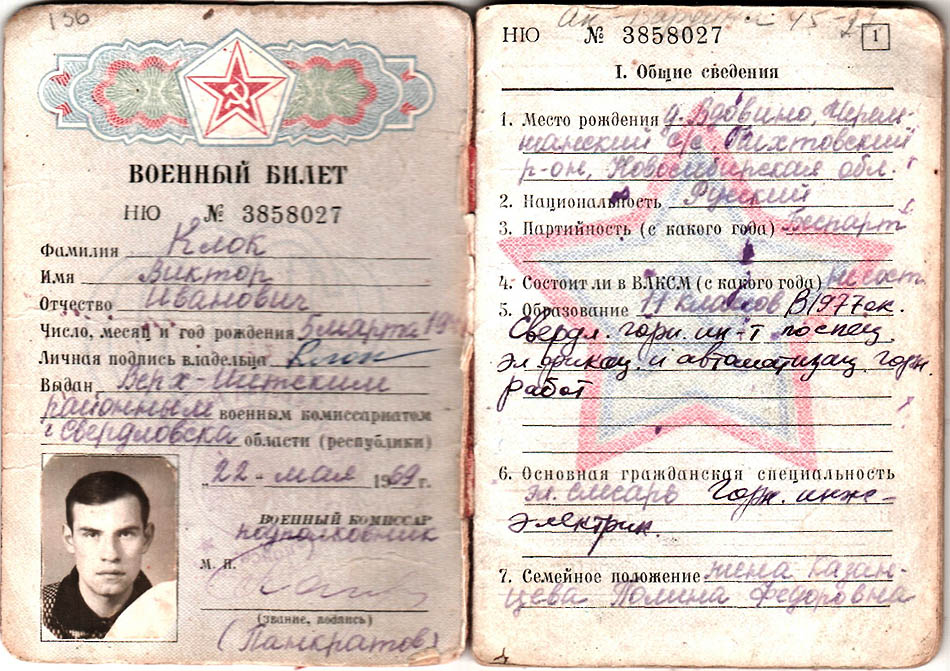 156
ВОЕННЫЙ БИЛЕТ
НЮ № 3858027
Фамилия Клок
Имя Виктор
Отчество Иванович
Число, месяц и год рождения 5 марта 19
Личная подпись владельца Клок
Выдан Верх-Исетским
районным военным комиссариатом
г. Свердловска области (республики)
„22 - мая 1969 г.
ВОЕННЫЙ КОМИССАР
подполковник
М. П.
(звание, подпись)
(Панкратов)
НЮ № 3858027
1
I. Общие сведения
1. Место рождения д. Вдовино,
с/с Пихтовский
р-он, Новосибирская обл.
2. Национальность Русский
3. Партийность (с какого года) Беспарт
4. Состоит ли в ВЛКСМ (с какого года) не сост
5. Образование 11 классов В 1977 ок.
Свердл. горн. ин-т по спец
эл. фикац. и автоматизац. горн.
работ
6. Основная гражданская специальность
эл. слесарь Горн. инже-
электрик.
7. Семейное положение жена Казан-
цева Полина Федоровна